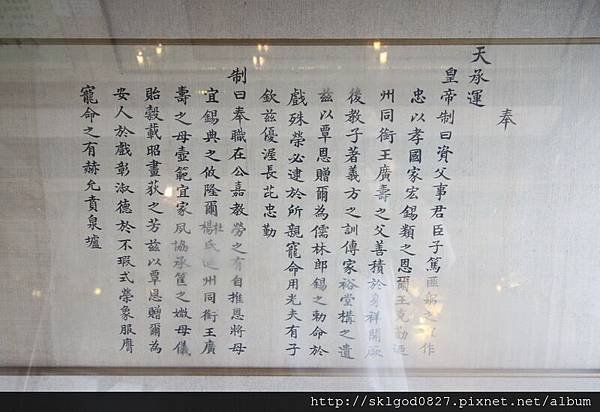 奉
天承運
皇帝制曰資父事君臣子篤匪躬之誼作
忠以孝國家宏錫類之恩爾王克勤迺
州同銜王廣壽之父善積於身祥開厥
後教子著義方之訓傳家裕堂構之遺
茲以覃恩贈爾為儒林郎錫之勅命於
戲殊榮必逮於所親寵命用光夫有子
欽茲優渥長茈忠勤
制曰奉職在公嘉教勞之有自推恩將母
宜錫典之攸隆爾楊杜氏迺州同銜王廣
壽之母壺範宜家夙協承筐之媺母儀
貽穀載昭畫荻之芳茲以覃恩贈爾為
安人於戲彰淑德於不瑕式榮象服膺
寵命之有赫允賁泉壚
http://sklgod0827.pixnet.net/album